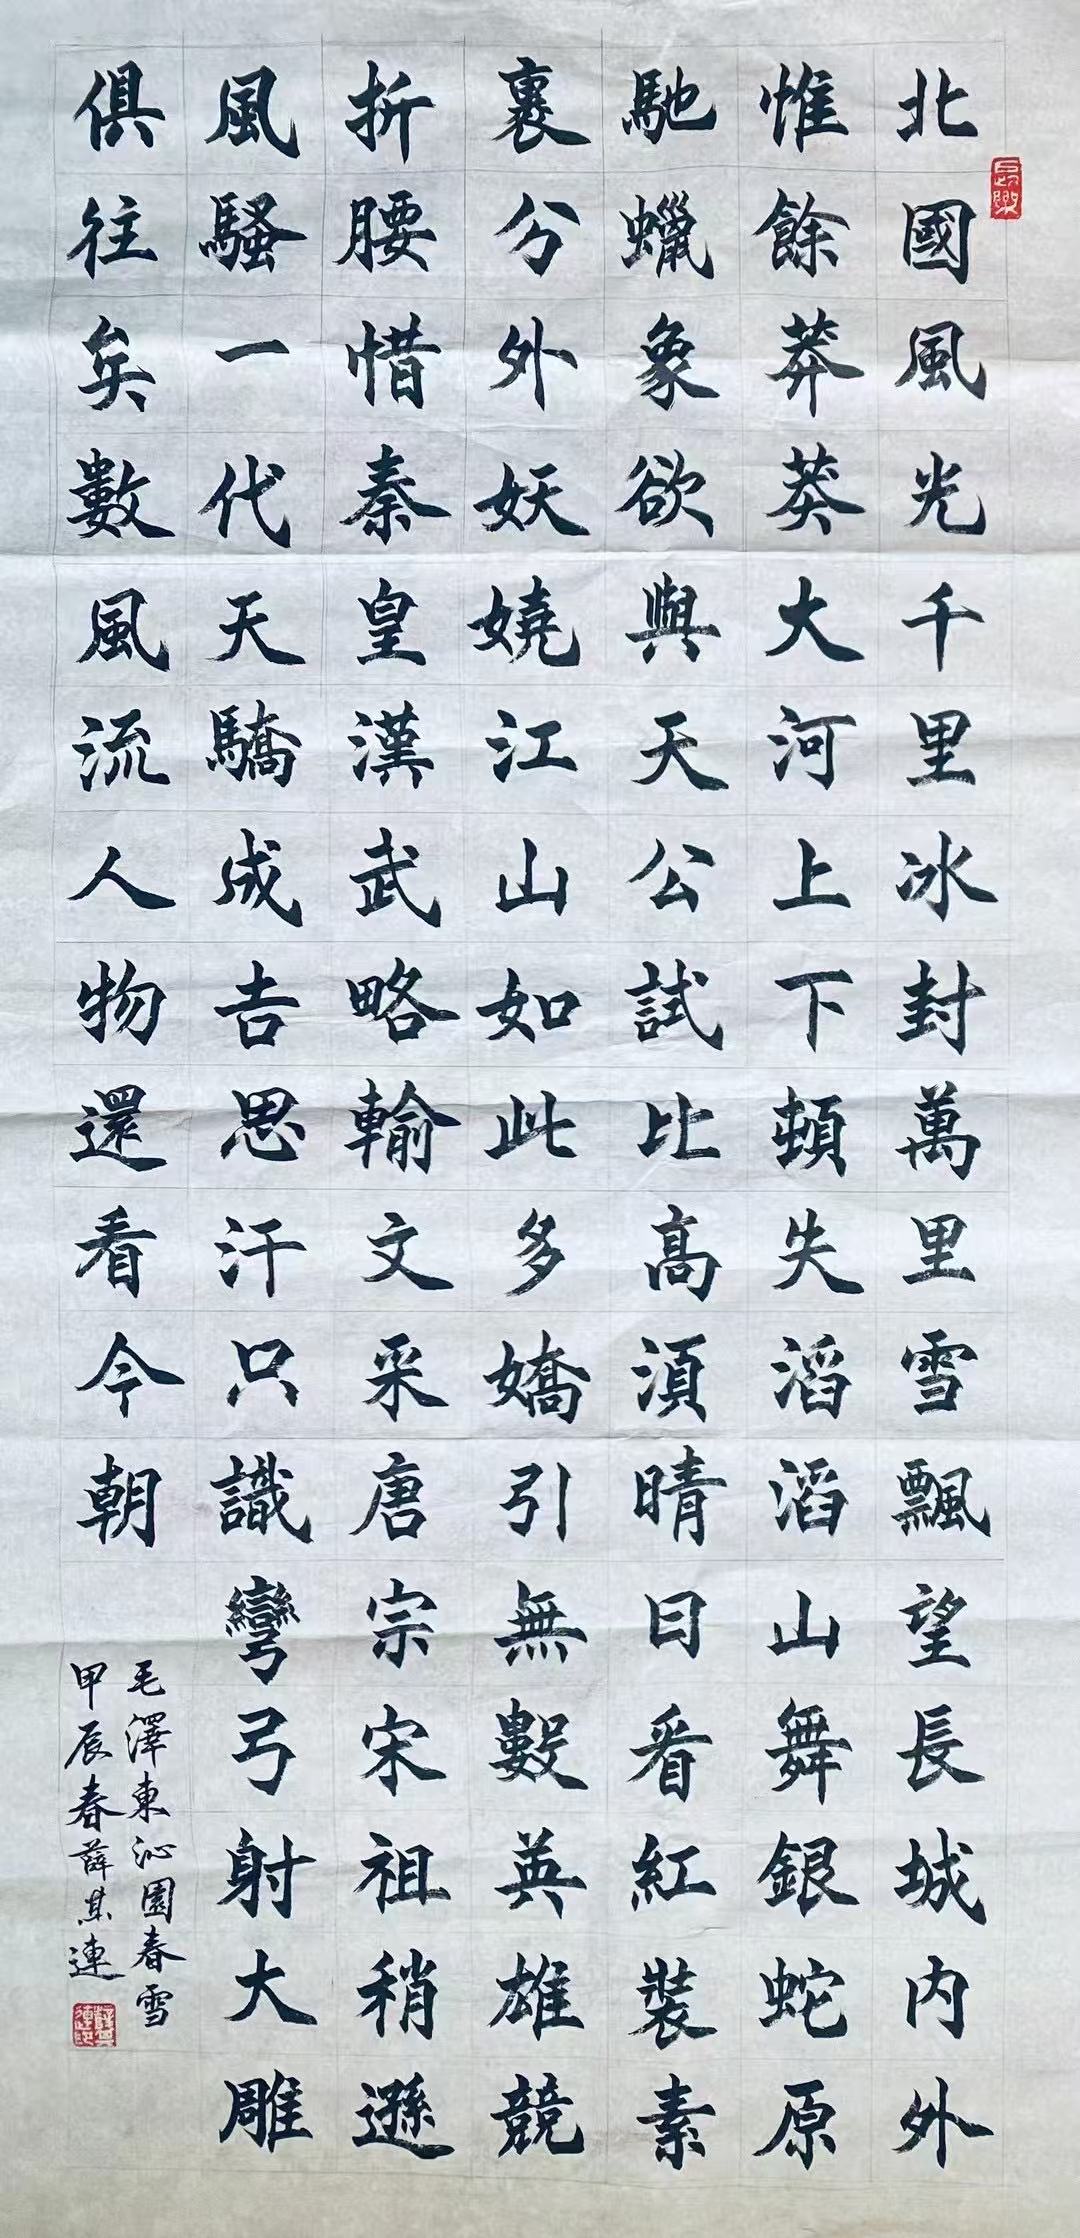 北國風光千里冰封萬里雪飄望長城内外
惟餘莽莽大河上下頓失滔滔山舞銀蛇原
馳蠟象欲與天公試比髙湏晴日看紅裝素
裹分外妖嬈江山如此多嬌引無數英雄競
折腰惜秦皇漢武略輸文采唐宗宋祖稍遜
風騷一代天驕成吉思汗只識彎弓射大雕
俱往矣數風流人物還看今朝
毛澤東沁園春雪
甲辰春薛其連